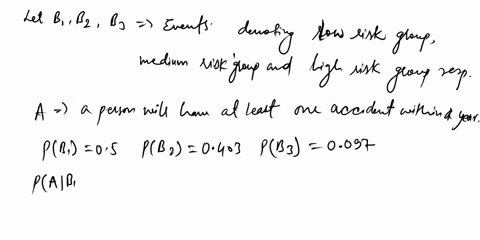 Let B1, B2, B3 => Events denoting low risk group,
medium risk group and high risk group resp.
A => a person will have at least one accident within a year.
P(B1) = 0.5 P(B2) = 0.403 P(B3) = 0.097
P(A|B1